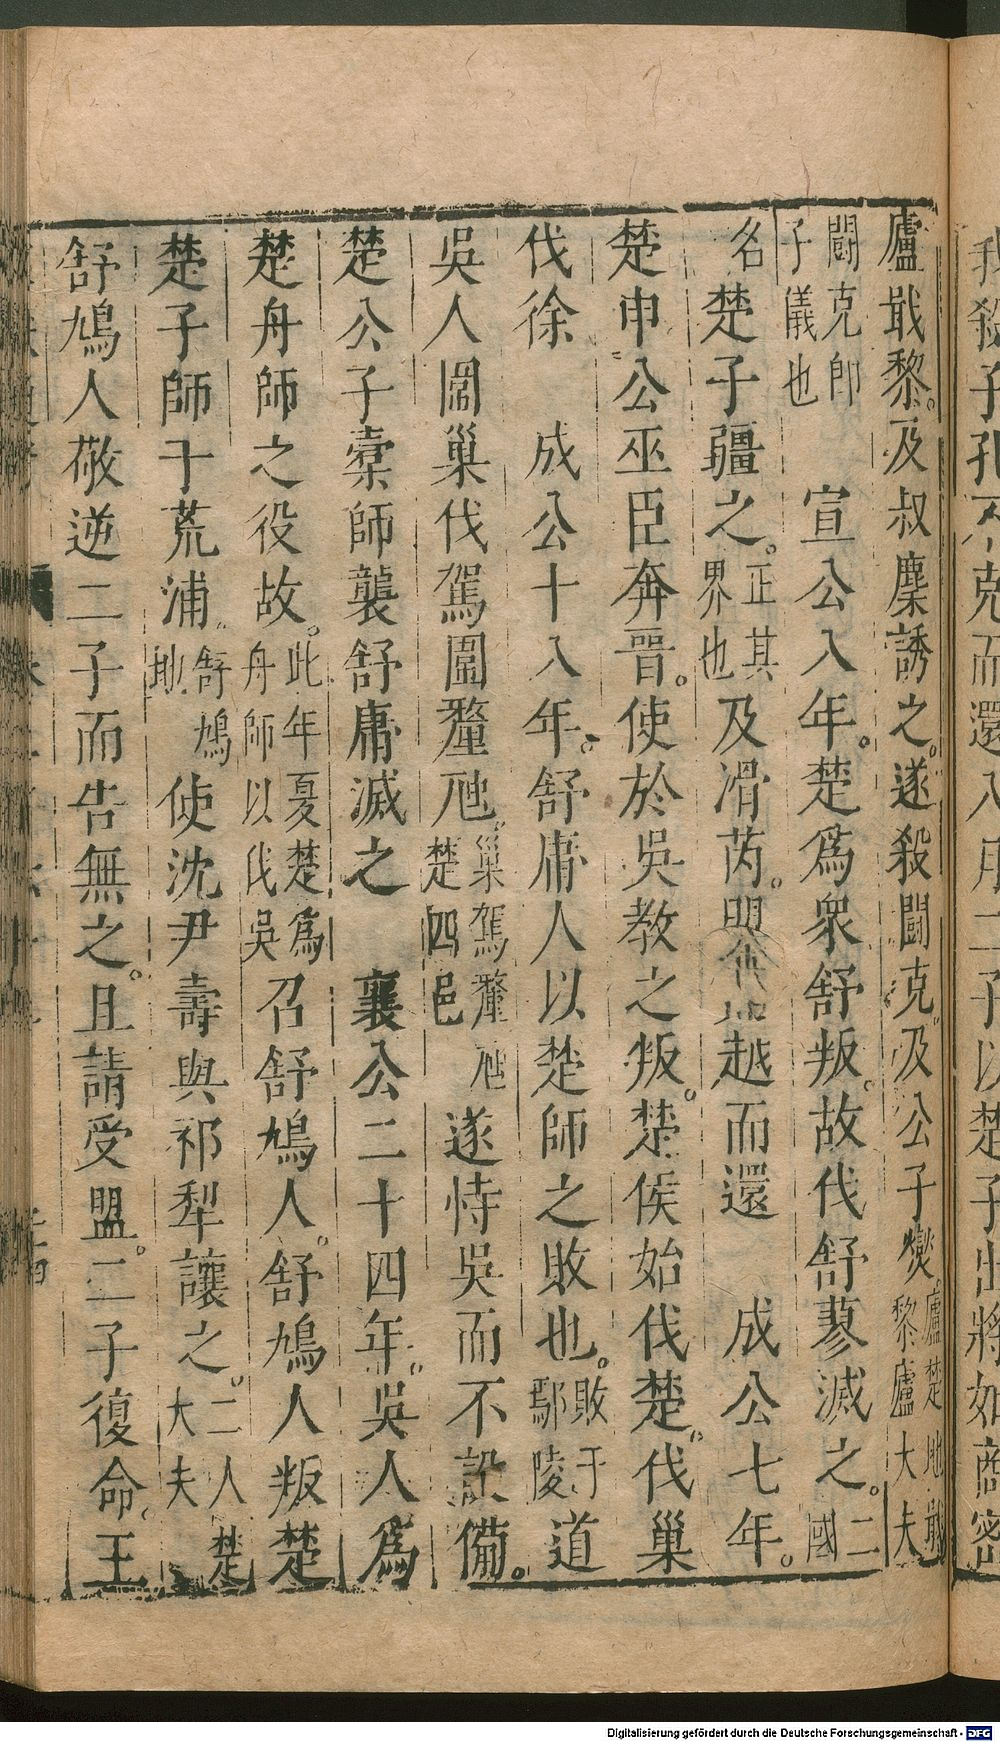 殺子孔不克而還八月二子以楚子出將如商密
廬戢黎。及叔麇誘之。遂殺鬭克。及公子燮。廬楚地戢黎廬大夫
鬭克即子儀也　宣公八年。楚爲衆舒叛。故伐舒蓼滅之。二國
名楚子疆之。正其界也及滑芮。盟吳越而還　成公七年。
楚申公巫臣奔晉。使於吳教之叛。楚侯始伐楚。伐巢
伐徐　成公十八年。舒庸人以楚師之敗也。敗于鄢陵道
吳人圍巢伐駕圍釐虺。巢駕釐虺楚四邑遂恃吳而不設備。
楚公子橐師襲舒庸滅之　襄公二十四年。吳人爲
楚舟師之役故。此年夏楚爲舟師以伐吳召舒鳩人。舒鳩人叛楚
楚子師于荒浦。舒鳩地使沈尹壽與祁犁讓之。二人楚大夫
舒鳩人敬逆二子而告無之。且請受盟。二子復命。王
Digitalisierung gefördert durch die Deutsche Forschungsgemeinschaft - DFG